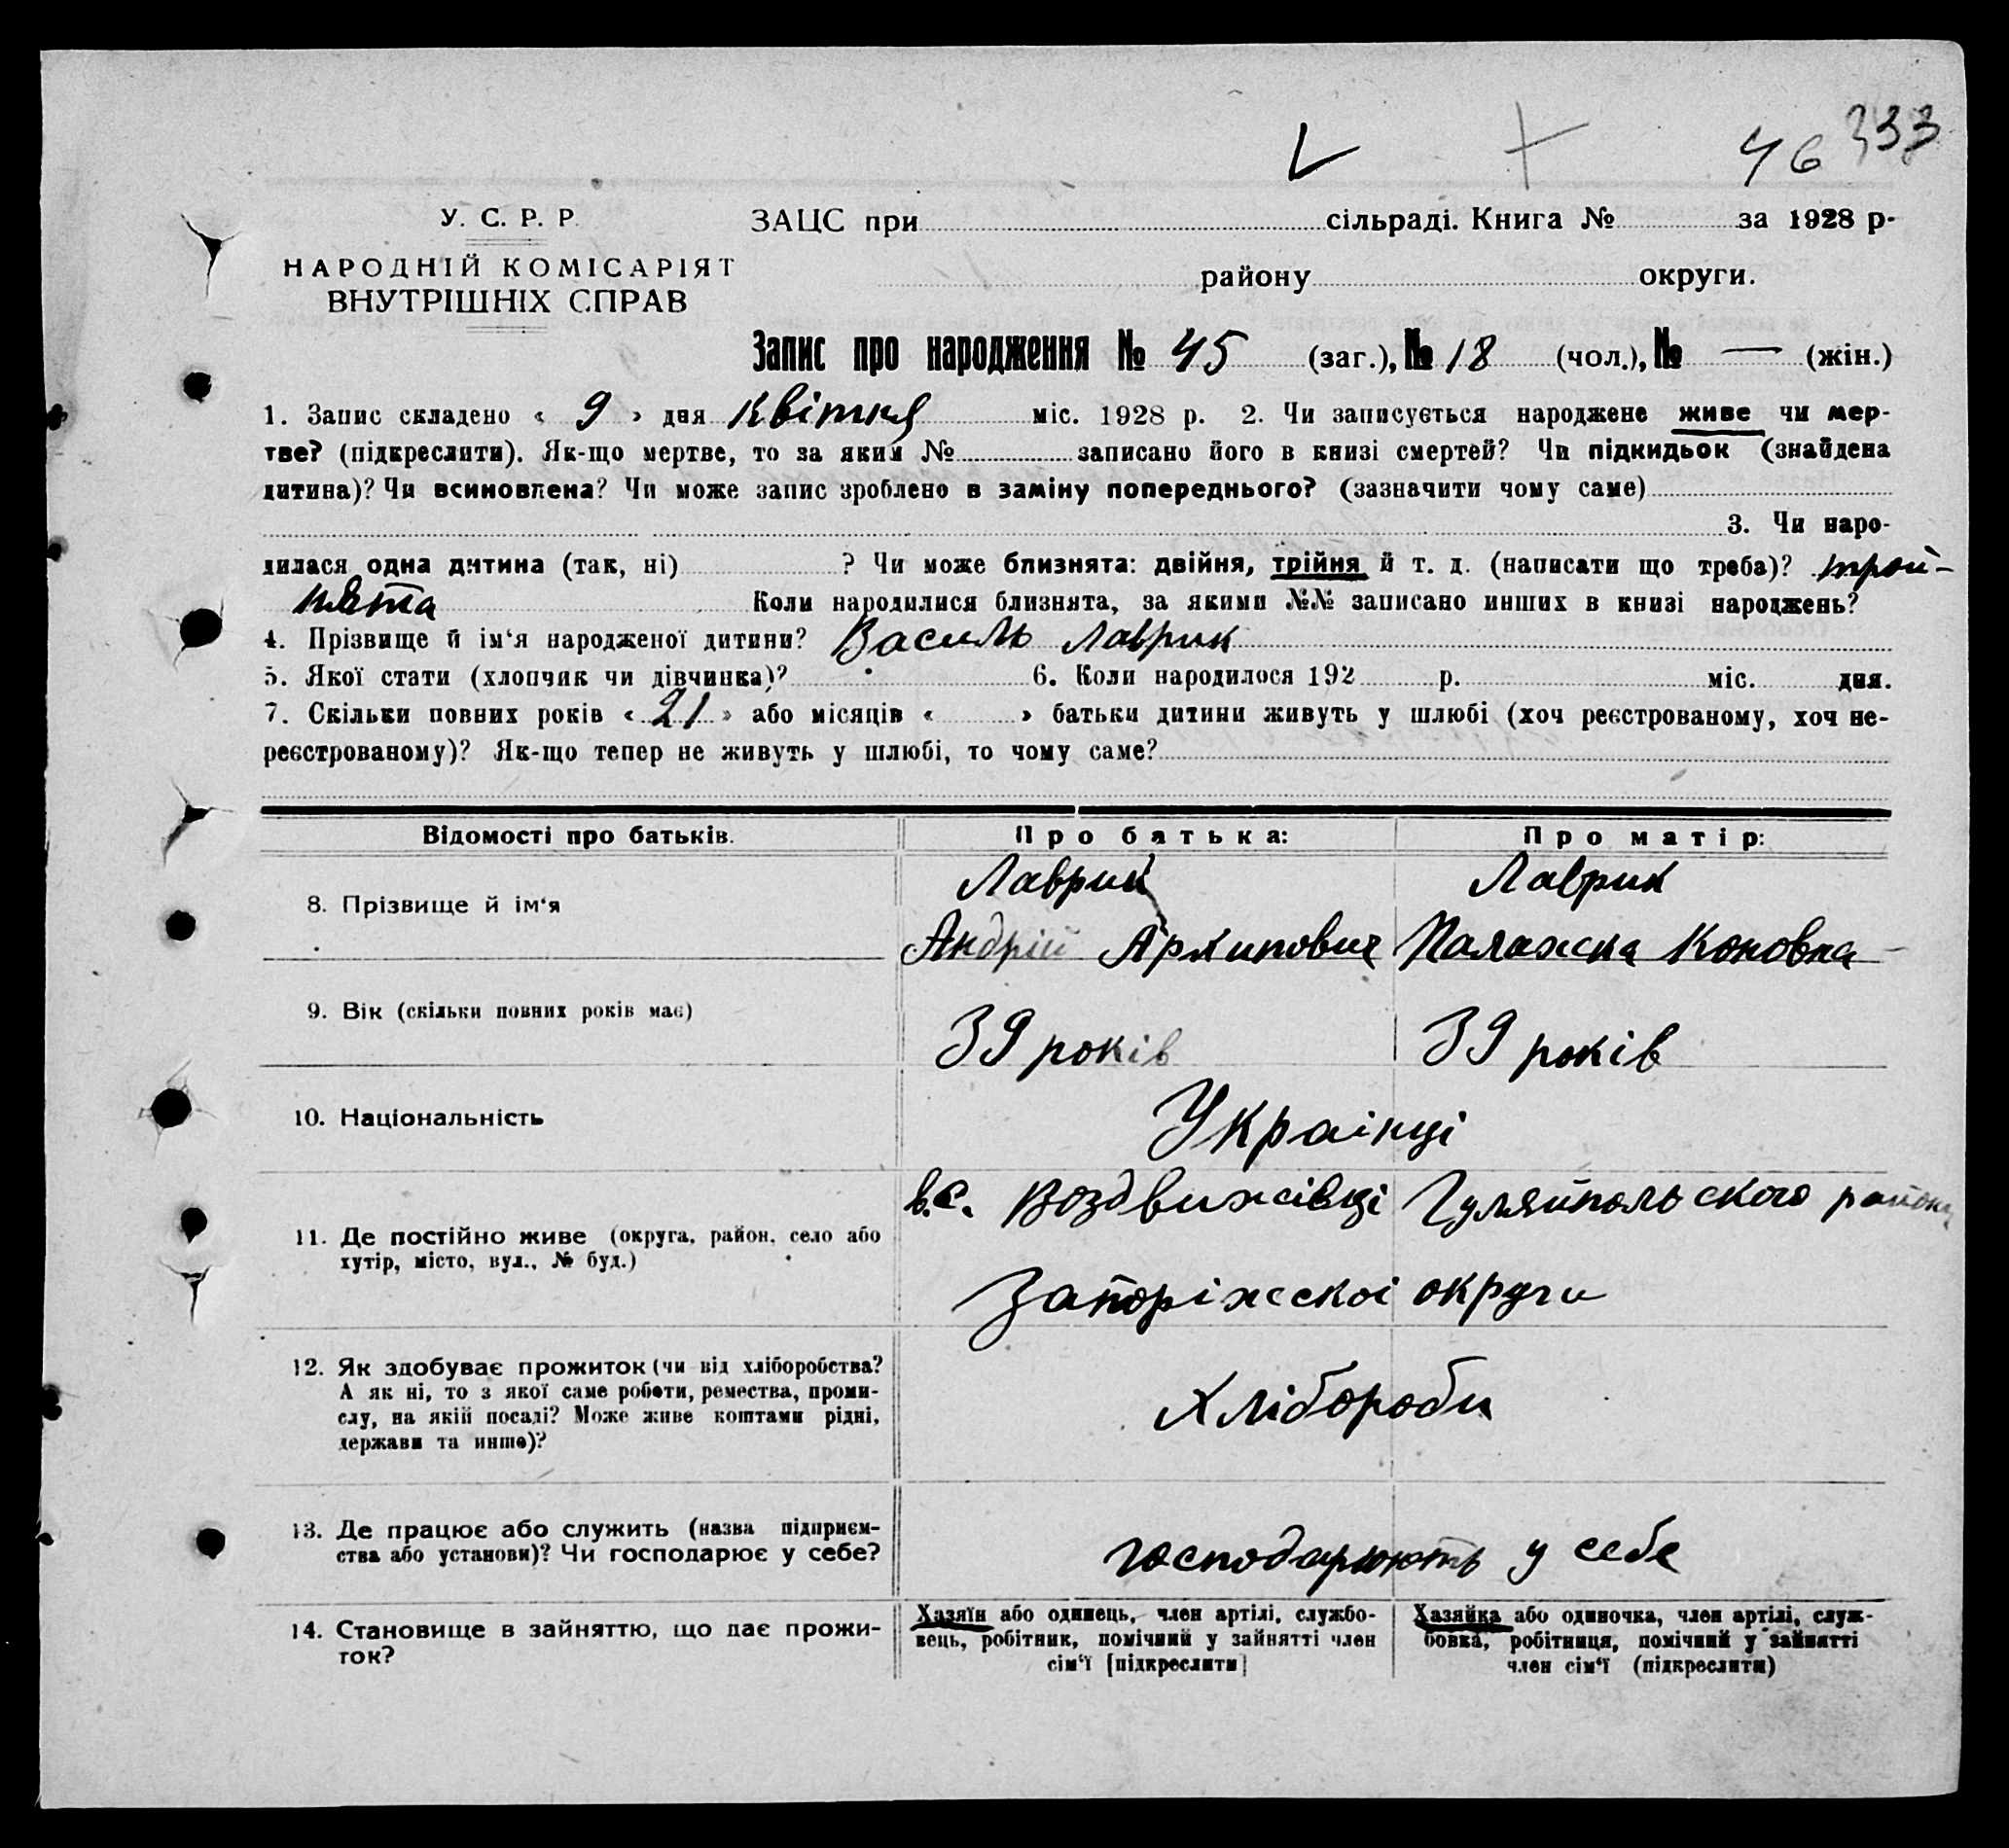 46 333
У. С. Р. Р. ЗАЦС при сільраді. Книга № за 1928 р.
НАРОДНІЙ КОМІСАРІЯТ району округи.
ВНУТРІШНІХ СПРАВ
Запис про народження № 45 (заг.), № 18 (чол.), № — (жін.)
1. Запис складено « 9 » дня Квітня міс. 1928 р. 2. Чи записується народжене живе чи мер-
тве? (підкреслити). Як-що мертве, то за яким № записано його в книзі смертей? Чи підкидьок (знайдена
дитина)? Чи всиновлена? Чи може запис зроблено в заміну попереднього? (зазначити чому саме)
3. Чи наро-
дилася одна дитина (так, ні) ? Чи може близнята: двійня, трійня й т. д. (написати що треба)? трой-
нята Коли народилися близнята, за якими №№ записано инших в книзі народжень?
4. Прізвище й ім‘я народженої дитини? Василь Лаврик
5. Якої стати (хлопчик чи дівчинка)? 6. Коли народилося 192 р. міс. дня.
7. Скільки повних років « 21 » або місяців « » батьки дитини живуть у шлюбі (хоч реєстрованому, хоч не-
реєстрованому)? Як-що тепер не живуть у шлюбі, то чому саме?
Відомості про батьків. Про батька: Про матір:
8. Прізвище й ім‘я Лаврик Лаврик
Андрій Архипович Палажка Коновна
9. Вік (скільки повних років має) 39 років 39 років
10. Національність Украінці
11. Де постійно живе (округа, район, село або
хутір, місто, вул., № буд.)
в.с. Воздвижівці Гуляйпольского району
Запоріжскоі округи
12. Як здобуває прожиток (чи від хліборобства?
А як ні, то з якої саме роботи, ремества, проми-
слу, на якій посаді? Може живе коштами рідні,
держави та инше)?
Хлібороби
13. Де працює або служить (назва підприєм-
ства або установи)? Чи господарює у себе?
господарюють у себе
14. Становище в зайняттю, що дає прожи-
ток?
Хазяїн або одинець, член артілі, службо-
вець, робітник, помічний у зайнятті член
сім‘ї [підкреслити]
Хазяйка або одиночка, член артілі, служ-
бовка, робітниця, помічний у зайнятті
член сім‘ї (підкреслити)